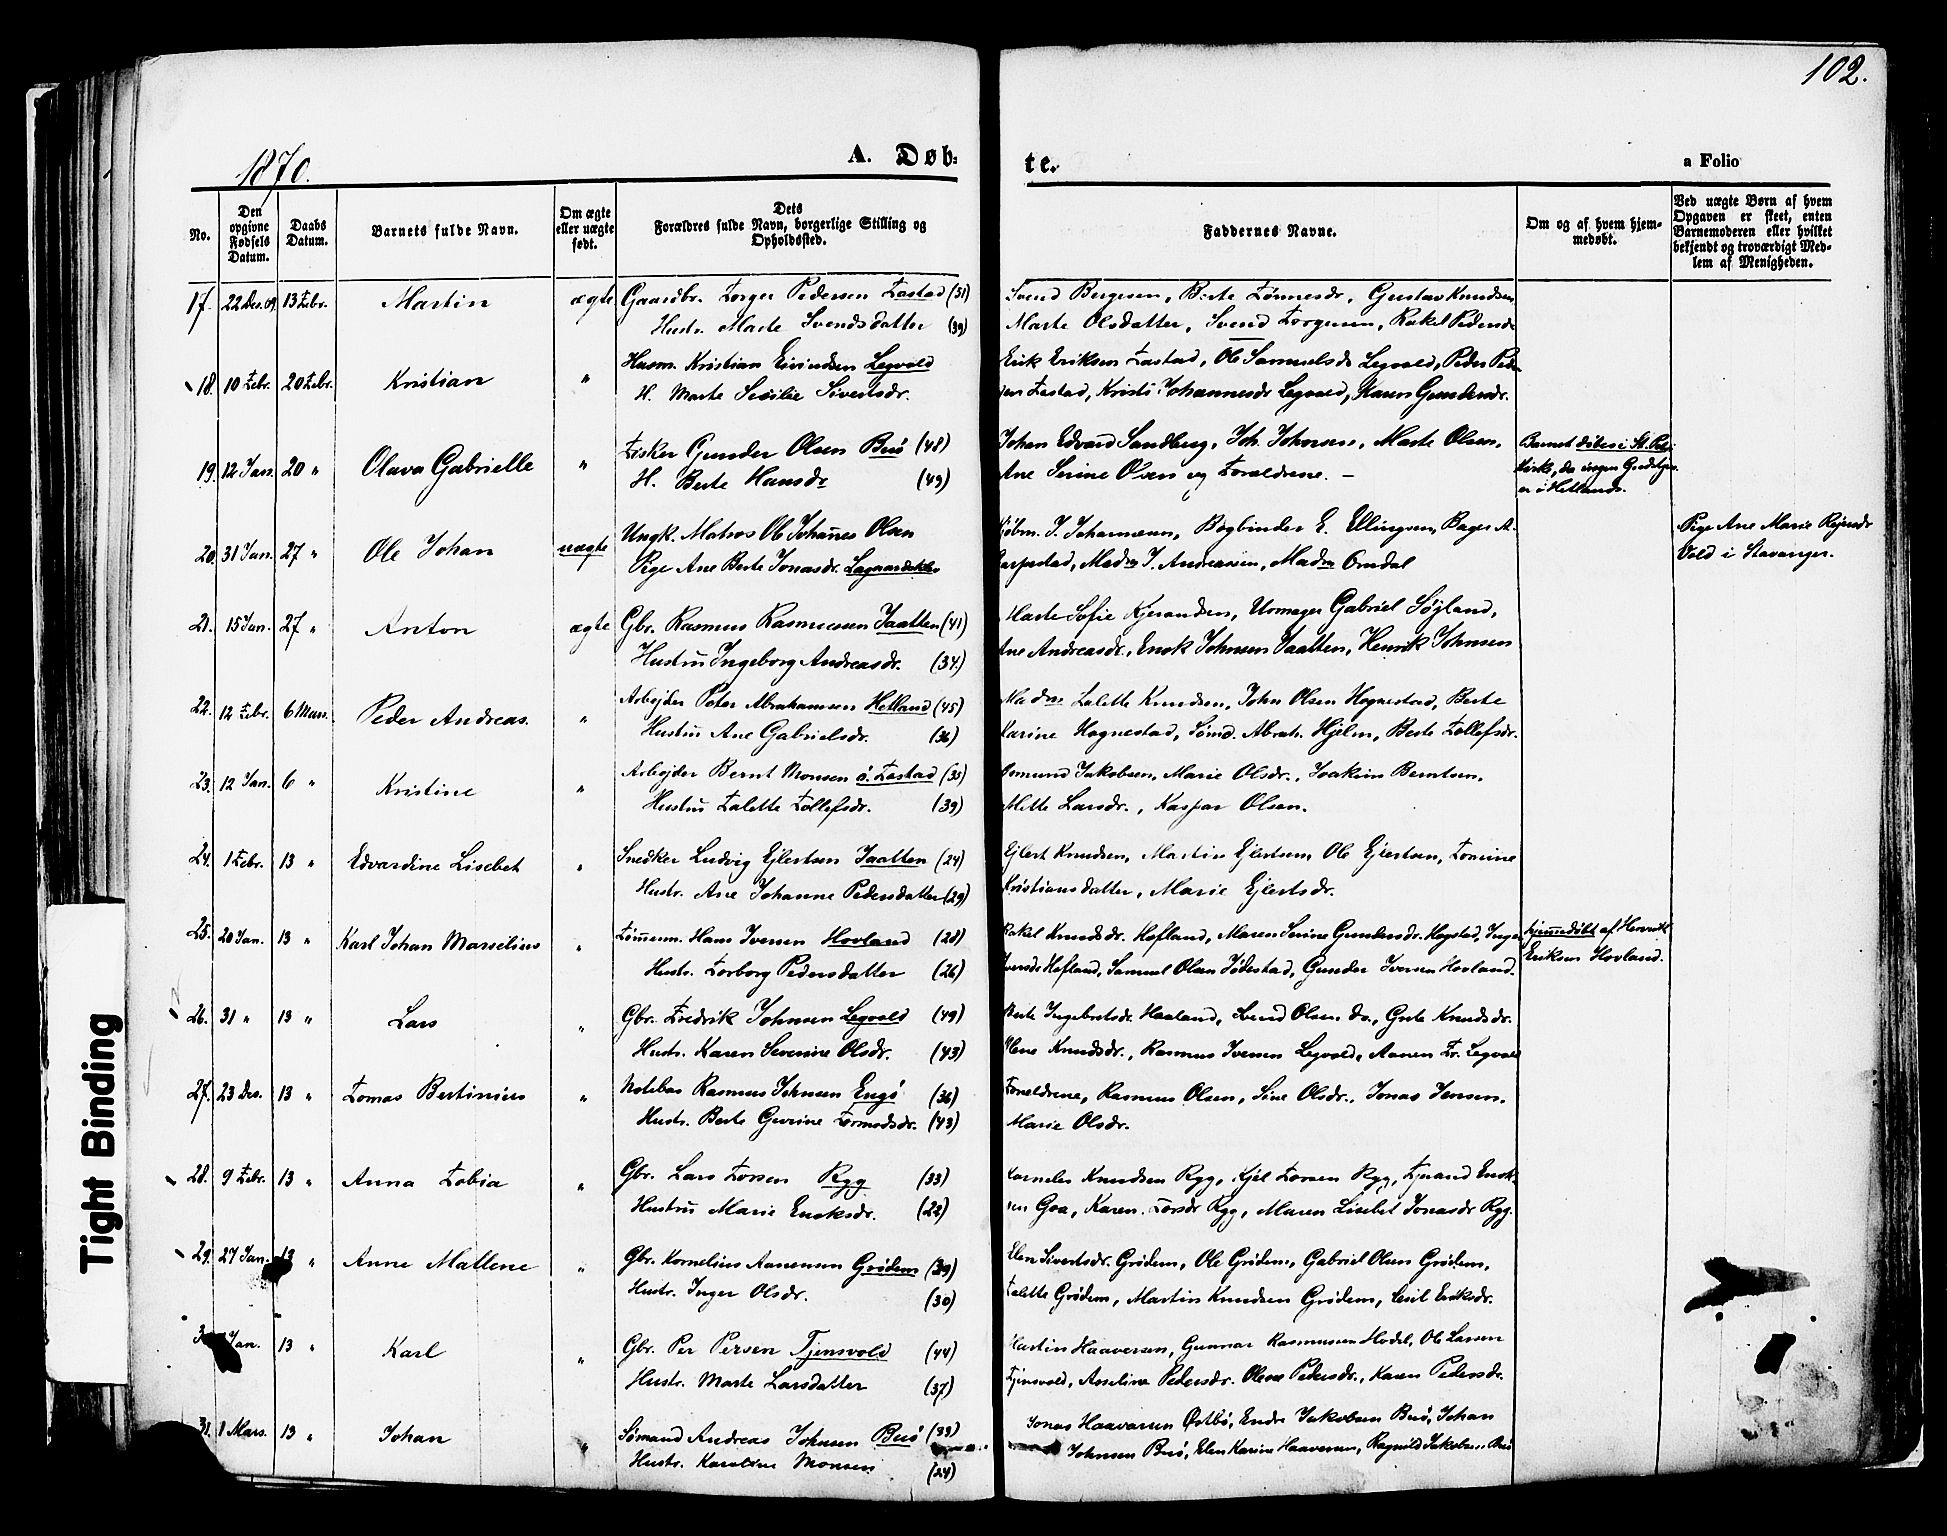 102.
1870.
A. Døb-
te.
a Folio
No.
Den opgivne Fødsels Datum.
Daabs Datum.
Barnets fulde Navn.
Om ægte eller uægte født.
Dets Forældres fulde Navn, borgerlige Stilling og Opholdssted.
Faddernes Navne.
Om og af hvem hjemmedøbt.
Ved uægte Børn af hvem Opgaven er skeet, enten Barnemoderen eller hvilket bekjendt og troværdigt Medlem af Menigheden.
17. 22 Des. 69 13 Febr. Martin ægte Gaardbr. Torger Pedersen Tastad (31) Svend Børgesen, Berte Tønnesdr, Gustav Knudsen
Hustr. Marte Svendsdatter (39) Marte Olsdatter, Svend Torgersen, Rakel Pedersdr
18. 10 Febr. 20 Febr. Kristian " Husm. Kristian Eivindsen Legvold Erik Eriksen Tastad, Ole Samuelsen Legvold, Peder Peder
H. Marte Sesilie Sivertsdr. Tastad, Kristi Johannesdr Legvold, Karen Gundersdr.
19. 12 Jan. 20 " Olava Gabrielle " Fisker Gunder Olsen Buø (48) Johan Edvard Sandberg, Joh. Johnsen, Marte Olsen, Barnet døbes i St. Petri
H. Berte Hansdr (49) Ane Serine Olsen og Forældrene. — Kirke, da ingen Gudstjen. er i Hetlands.
20. 31 Jan. 27 " Ole Johan uægte Ungk. Matros Ole Johannes Olsen Kjøbm. J. Johannesen, Bogbinder E. Ellingsen, Bager A. Pige Ane Marie
Pige Ane Berte Jonasdr. Lagaardsklev Madm J. Andreassen, Madm Omdal Vold i Stavanger.
21. 15 Jan. 27 " Anton ægte Gbr. Rasmus Rasmussen Jaatten (41) Marte Sofie Kjerandsen, Urmager Gabriel Søyland,
Hustru Ingeborg Andreasdr. (34.) Ane Andreasdr., Enok Johnsen Jaatten, Henrik Johnsen
22. 12 Febr. 6 Mars. Peder Andreas. " Arbejder Peter Abrahamsen Hetland (45) Madm Talette Knudsen, John Olsen Hognestad, Berte
Hustru Ane Gabrielsdr. (36) Karine Hognestad, Sømd. Abrah. Hjelm, Berte Tollefsdr.
23. 12 Jan. 6 " Kristine " Arbejder Bernt Monsen ø. Tastad (35) Osmund Jakobsen, Marie Olsdr., Joakim Berntsen,
Hustru Talette Tollefsdr. (39) Mette Larsdr., Kaspar Olsen.
24. 1 Febr. 13 " Edvardine Lisebet " Snedker Ludvig Ejlertsen Jaatten (24) Ejlert Knudsen, Martin Ejlertsen, Ole Ejlertsen, Tomine
Hustr. Ane Johanne Pedersdatter (29) Kristiansdatter, Marie Ejlertsdr.
25. 20 Jan. 13 " Karl Johan Marselius " Tømmerm. Hans Iversen Hovland (28) Rakel Knudsdr. Hofland, Maren Serine Gundersdr. Hogstad, Inger hjemmedøbt af Henrik
Hustr. Torborg Pedersdatter (26) Iversdr Hofland, Samuel Olsen Jødestad, Gunder Iversen Hovland. Eriksen Hovland.
26. 31 " 13 " Lars " Gbr. Fredrik Johnsen Legvold (49) Berte Ingebretsdr. Haaland, Svend Olsen do., Gurte Knudsdr.
Hustr. Karen Severine Olsdr. (43) Elene Knudsdr., Rasmus Iversen Legvold, Aanen Fr. Legvold
27. 23 Des. 13 " Tomas Bertinius " Notebas Rasmus Johnsen Engø (36) Forældrene, Rasmus Olsen, Sine Olsdr., Jonas Jensen,
Hustr. Berte Gurine Tormodsdr. (43) Marie Olsdr.
28. 9 Febr. 13 " Anna Tobia " Gbr. Lars Torsen Ryg (33) Kornelius Knudsen Ryg, Kjel Torsen Ryg, Tjerand Enok-
Hustru Marie Enoksdr. (22) sen Goa, Karen Torsdr Ryg, Maren Lisebet Jonasdr Ryg.
29. 27 Jan. 13 " Anne Mallene " Gbr. Kornelius Aanensen Grødem (39) Elen Sivertsdr. Grødem, Ole Grødem, Gabriel Olsen Grødem,
Hustr. Inger Olsdr. (30) Talette Grødem, Martin Knudsen Grødem, Cecil Eriksdr.
3 Jan. 13 " Karl " Gbr. Per Persen Tjensvold (44) Martin Haaversen, Gunnar Rasmussen Hodel, Ole Larsen
Hustr. Marte Larsdatter (37) Tjensvold, Asseline Pedersdr. Olene Pedersdr., Karen Pedersdr.
31. 1 Mars. 13 " Johan " Sømand Andreas Johnsen Buø (33) Jonas Haavarsen Østbø, Endre Jakobsen Buø, Johan
Hustr. Karoline Monsen (24) Johnsen Buø, Elen Karine Haaversen, Ragnild Jakobsen Buø
Tight Binding